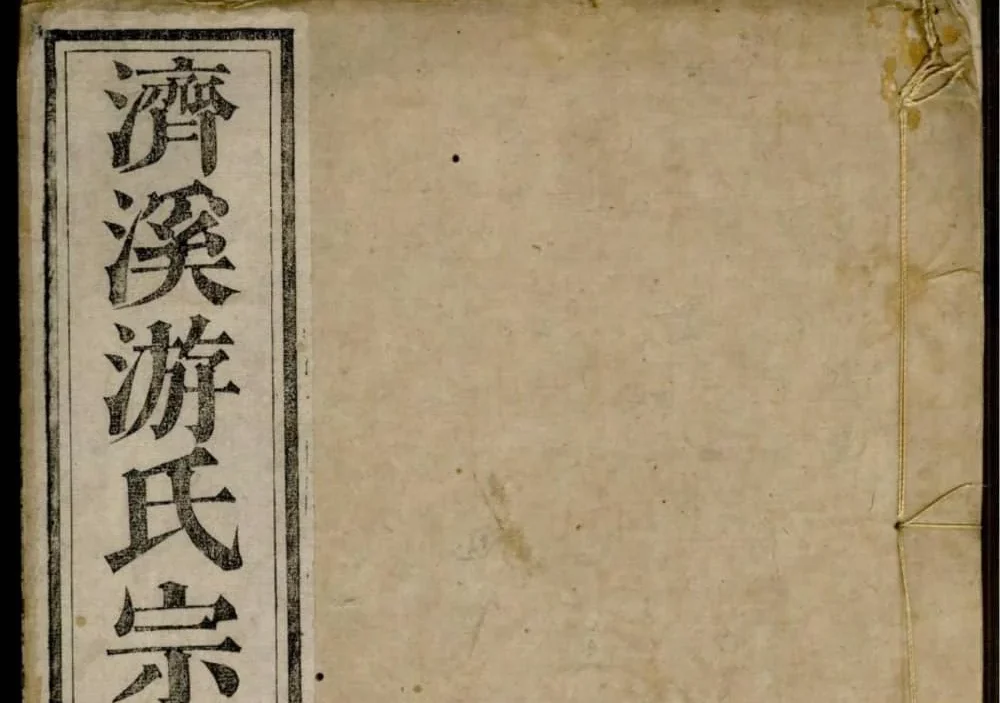 濟溪游氏宗